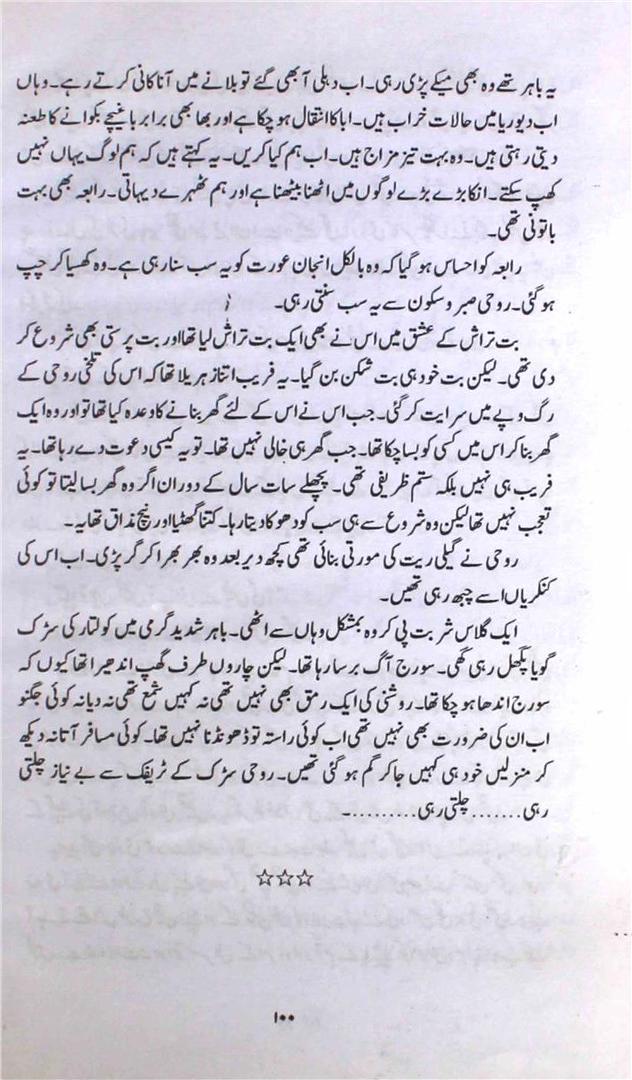 یہ باہر تھے وہ بھی میکے پڑی رہی۔ اب دہلی آ بھی گئے تو بلانے میں آنا کانی کرتے رہے۔ وہاں
اب دیوریا میں حالات خراب ہیں۔ ابا کا انتقال ہو چکا ہے اور بھابھی برابر باغیچے بکوانے کا طعنہ
دیتی رہتی ہیں۔ وہ بہت تیز مزاج ہیں۔ اب ہم کیا کریں۔ یہ کہتے ہیں کہ ہم لوگ یہاں نہیں
کھپ سکتے۔ انکا بڑے بڑے لوگوں میں اٹھنا بیٹھنا ہے اور ہم ٹھہرے دیہاتی۔ رابعہ بھی بہت
باتونی تھی۔
رابعہ کو احساس ہو گیا کہ وہ بالکل انجان عورت کو یہ سب سنا رہی ہے۔ وہ کھسیا کر چپ
ہو گئی۔ روحی صبر و سکون سے یہ سب سنتی رہی۔
بت تراش کے عشق میں اس نے بھی ایک بت تراش لیا تھا اور بت پرستی بھی شروع کر
دی تھی۔ لیکن بت خود ہی بت شکن بن گیا۔ یہ فریب اتنا زہریلا تھا کہ اس کی تلخی روحی کے
رگ و پے میں سرایت کر گئی۔ جب اس نے اس کے لئے گھر بنانے کا وعدہ کیا تھا تو اور وہ ایک
گھر بنا کر اس میں کسی کو بسا چکا تھا۔ جب گھر ہی خالی نہیں تھا۔ تو یہ کیسی دعوت دے رہا تھا۔ یہ
فریب ہی نہیں بلکہ ستم ظریفی تھی۔ پچھلے سات سال کے دوران اگر وہ گھر بسا لیتا تو کوئی
تعجب نہیں تھا لیکن وہ شروع سے ہی سب کو دھوکا دیتا رہا۔ کتنا گھٹیا اور نیچ مذاق تھا یہ۔
روحی نے گیلی ریت کی مورتی بنائی تھی کچھ دیر بعد وہ بھر بھرا کر گر پڑی۔ اب اس کی
کنکریاں اسے چبھ رہی تھیں۔
ایک گلاس شربت پی کر وہ بمشکل وہاں سے اٹھی۔ باہر شدید گرمی میں کولتار کی سڑک
گویا پگھل رہی تھی۔ سورج آگ برسا رہا تھا۔ لیکن چاروں طرف گھپ اندھیرا تھا کیوں کہ
سورج اندھا ہو چکا تھا۔ روشنی کی ایک رمق بھی نہیں تھی نہ کہیں شمع تھی نہ دیا نہ کوئی جگنو
اب ان کی ضرورت بھی نہیں تھی اب کوئی راستہ تو ڈھونڈنا نہیں تھا۔ کوئی مسافر آتا نہ دیکھ
کر منزلیں خود ہی کہیں جا کر گم ہو گئی تھیں۔ روحی سڑک کے ٹریفک سے بے نیاز چلتی
رہی....... چلتی رہی.........۔
☆☆☆
۱۰۰